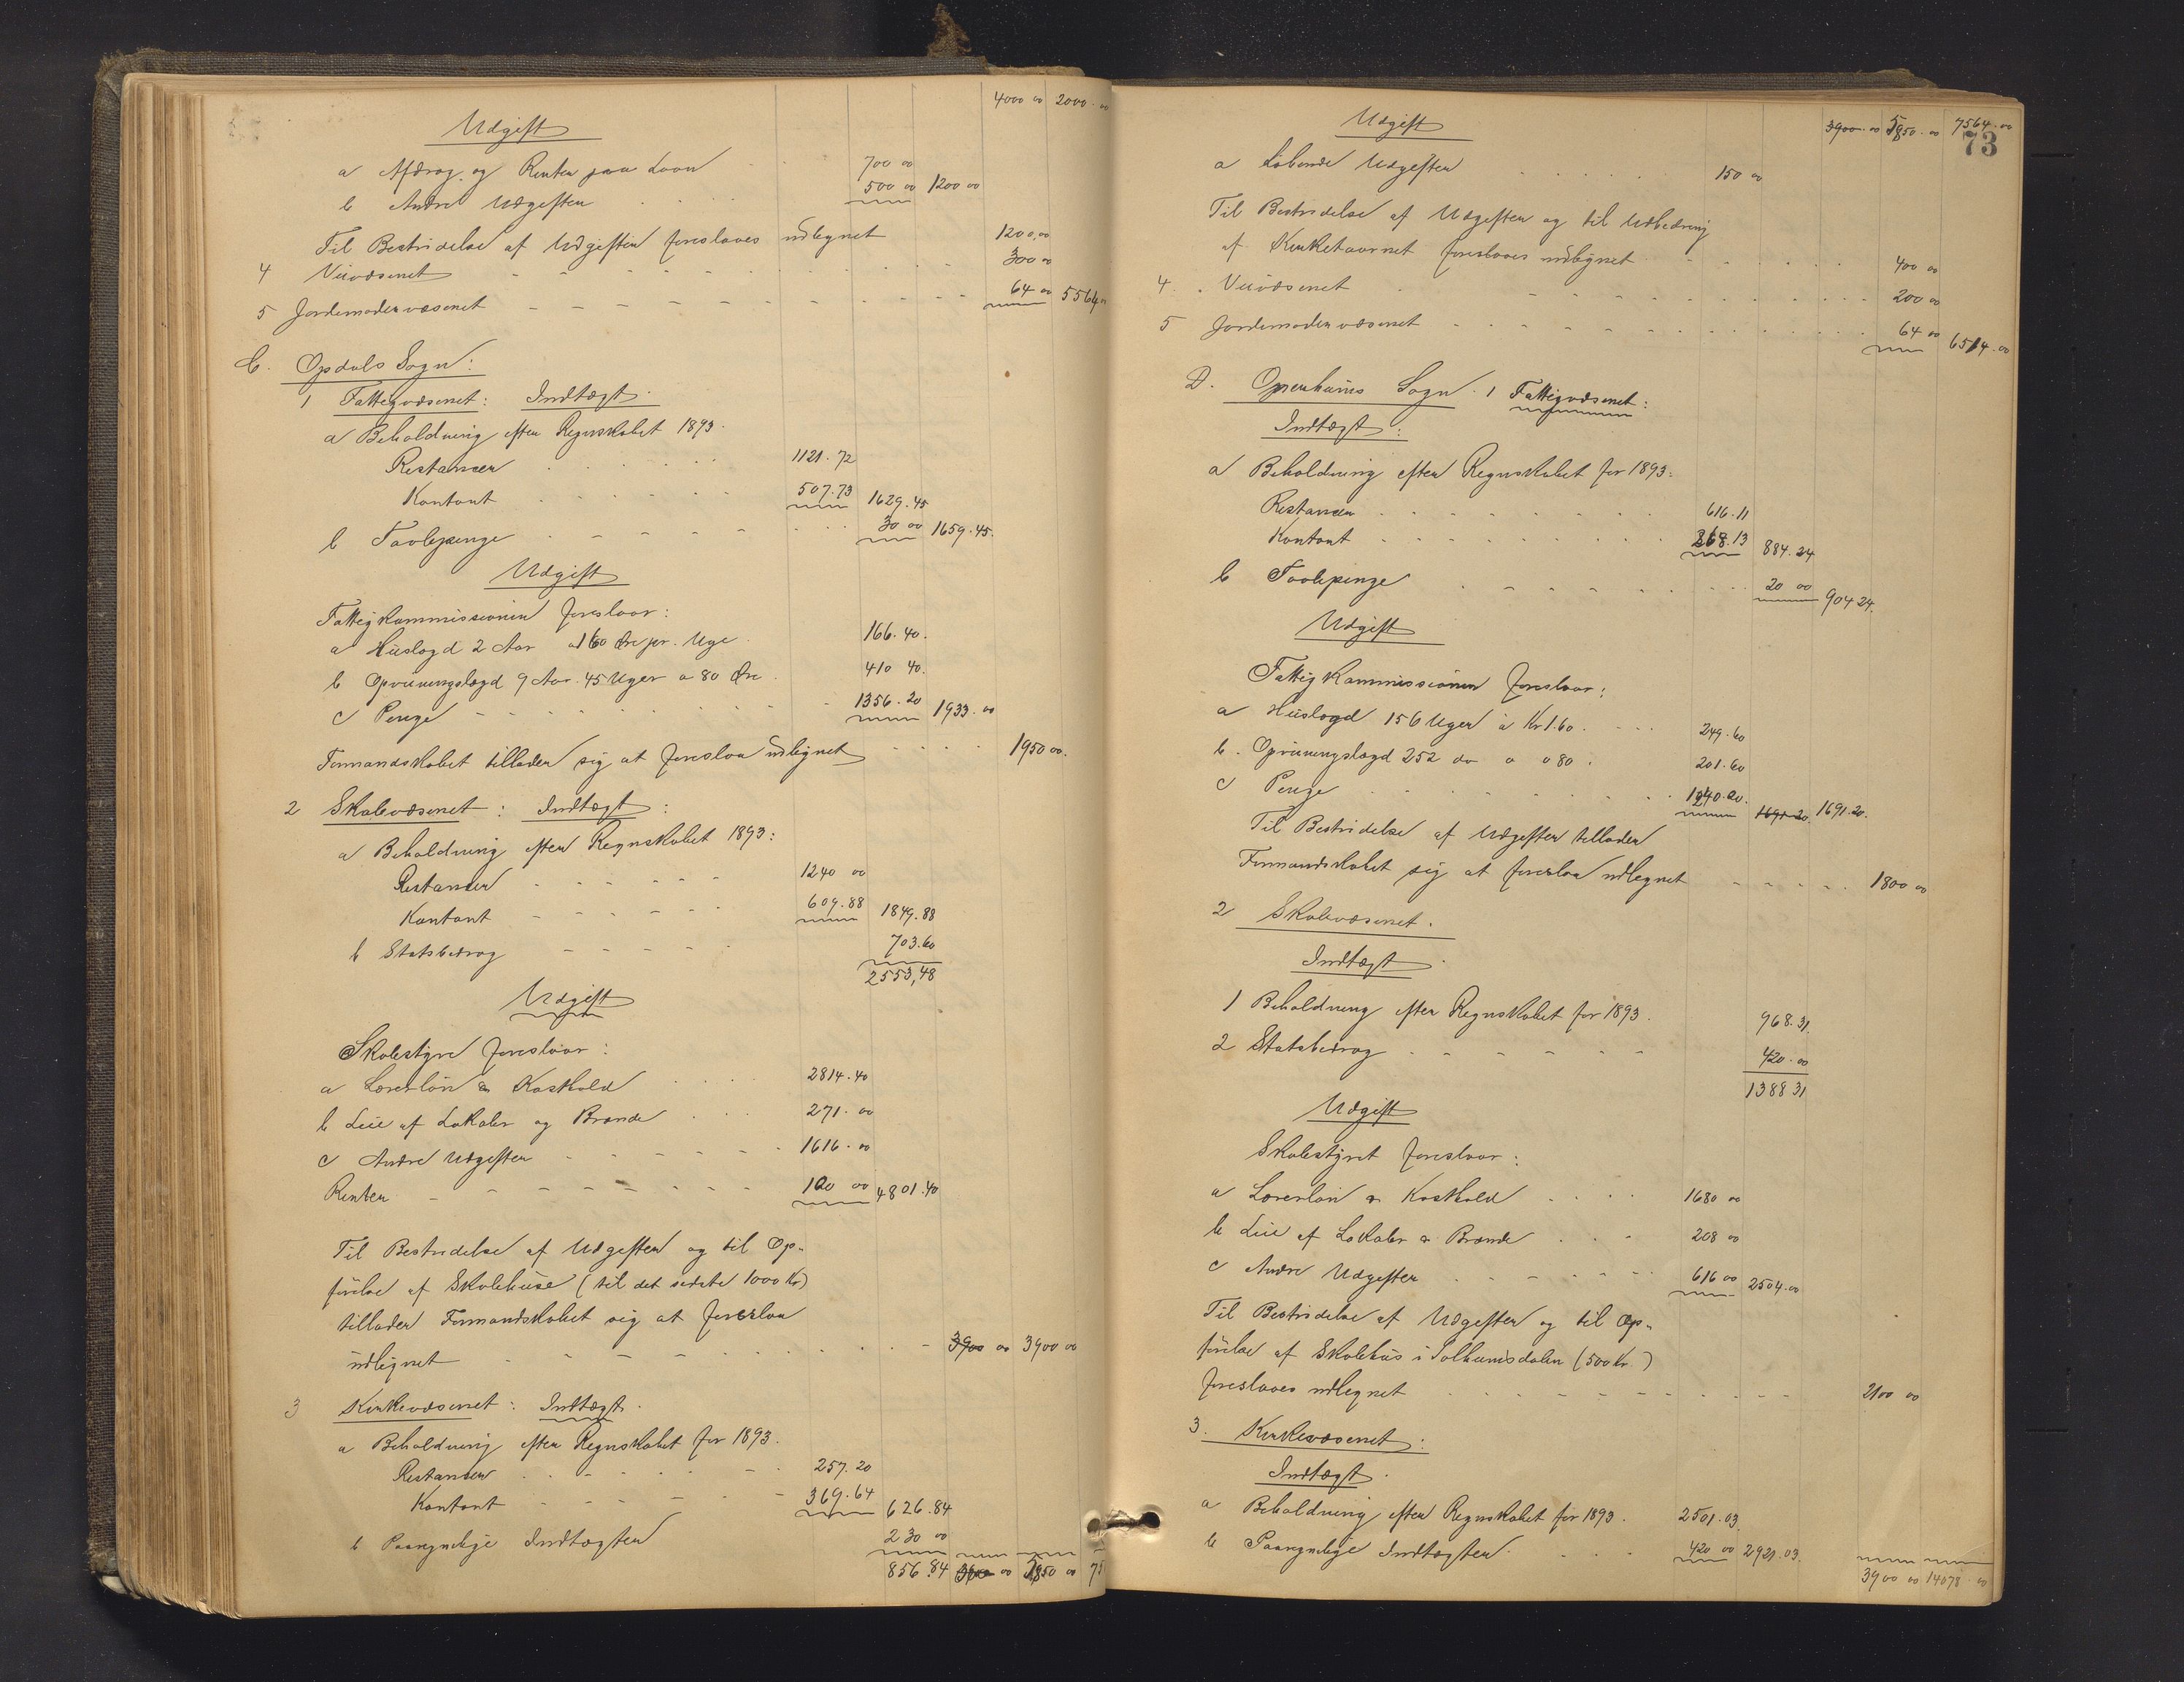 4000 00 2000.00
Udgift
a Afdrag og Renter paa Laan 700 00
b Andre Udgifter 500 00 1200 00
Til Bestridelse af Udgiften foreslaaes udlignet 1200,00
4 Veivæsenet 300 00
5 Jordemodervæsenet 64 00 5564 00
C. Opdals Sogn:
1 Fattigvæsenet: Indtægt.
a Beholdning efter Regnskabet 1893.
Restancer 1121.72
Kontant 507.73 1629.45
b Tavlepenge 30 00 1659.45.
Udgift
Fattigkommissionen foreslaar:
a Huslægd 2 Aar a 160 Øre pr. Uge 166.40.
b Opfostringslægd 9 Aar. 45 Uger a 80 Øre 410 40.
c Penge 1356.20 1933.00
Formandskabet tillader sig at foreslaa udlignet 1950 00.
2 Skolevæsenet: Indtægt:
a Beholdning efter Regnskabet 1893:
Restancer 1240 00
Kontant 609.88 1849.88
b Statsbidrag 703.60
2553,48
Udgift
Skolestyre foreslaar:
a Lærerløn & Kosthold 2814.40
b Leie af Lokaler og Brænde 271.00
c Andre Udgifter 1616.00
Renter 100 00 4801.40
Til Bestridelse af Udgiften og til Op-
førelse af Skolehuse (til det sidste 1000 Kr)
tillader Formandskabet sig at foreslaa
udlignet 3900 00 3900 00
3 Kirkevæsenet: Indtægt.
a Beholdning efter Regnskabet for 1893.
Restancer 257.20
Kontant 369.64 626.84
b Paaregnelige Indtægter 230 00
856.84 3900 00 5850 00 75
73
3900.00 5850.00 7564.00
Udgift
a Løbende Udgifter 150 00
Til Bestridelse af Udgiften og til Udbedring
af Kirketaarnet foreslaaes udlignet 400 00
4. Veivæsenet 200 00
5 Jordemodervæsenet 64 00 6514.00
D. Openhams Sogn. 1 Fattigvæsenet:
Indtægt:
a Beholdning efter Regnskabet for 1893:
Restancer 616.11
Kontant 268.13 884.24
b Tavlepenge 20 00 904 24.
Udgift
Fattigkommissionen foreslaar:
a Huslægd 156 Uger à Kr 1.60. 249.60
b. Opfostringslægd 252 do a 0 80. 201.60
c Penge 1240.00. 1691.20. 1691.20.
Til Bestridelse af Udgiften tillader
Formandskabet sig at foreslaa udlignet 1800 00
2 Skolevæsenet.
Indtægt.
1 Beholdning efter Regnskabet for 1893. 968.31.
2 Statsbidrag 420.00
1388 31
Udgift
Skolestyret foreslaar:
a Lærerløn & Kosthold 1680 00
b Leie af Lokaler & Brænde 208 00
c Andre Udgifter 616 00 2504.00
Til Bestridelse af Udgiften og til Op-
førelse af Skolehus i Solhemsdalen (500 Kr.)
foreslaaes udlignet 2100 00
3. Kirkevæsenet:
Indtægt.
a Beholdning efter Regnskabet for 1893. 2501.03.
b Paaregnelige Indtægter. 420 00 2921.03.
3900 00 14078.00